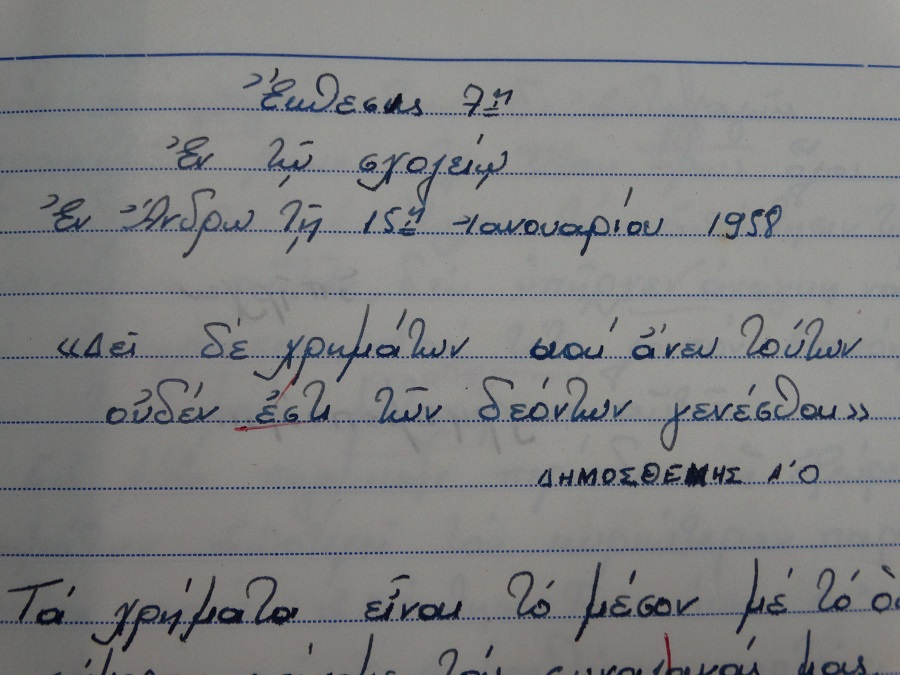 Ἔκθεσις 7η
Ἐν τῷ σχολείῳ
Ἐν Ἄνδρῳ τῇ 15η Ἰανουαρίου 1958
«Δεῖ δέ χρημάτων καί ἄνευ τούτων
οὐδέν ἐστι τῶν δεόντων γενέσθαι»
ΔΗΜΟΣΘΕΝΗΣ Α'Ο
Τά χρήματα εἶναι τό μέσον μέ τό
τάς μας